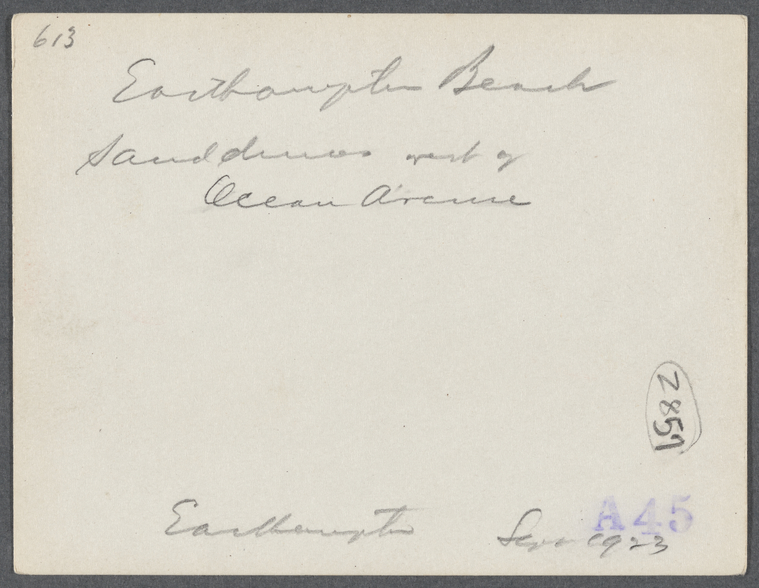 613
Easthampton Beach
Sand dunes west of
Ocean Avenue
Z 857
Easthampton Sept 1923
A45